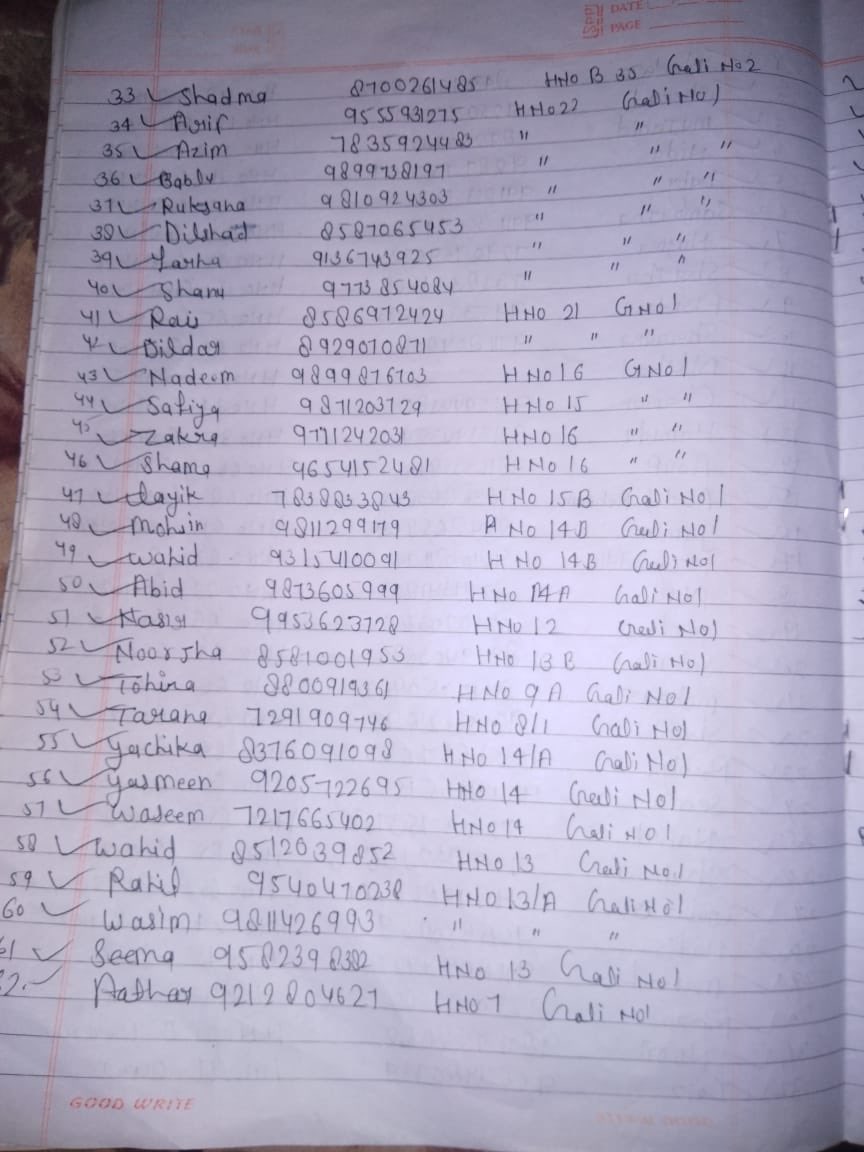 DATE:
PAGE
33 ✓ Shadma 8700261485 HNO B 35 Gali No 2
34 ✓ Arif 9555931275 HNO 22 Gali No 1
35 ✓ Azim 7835924483 " "
36 ✓ Bablu 9899738197 " " "
37 ✓ Ruksana 9810924303 " " "
38 ✓ Dilshad 8587065453 " " "
39 ✓ 9136743925 " " "
40 ✓ Shanu 9773854084 " " "
41 ✓ Rais 8586972424 HNO 21 GNO 1
✓ Dildar 8929070871 " " "
43 ✓ Nadeem 9899876703 HNO 16 GNO 1
44 ✓ Safiya 9871203729 HNO 15 " "
45 ✓ Zakra 9711242031 HNO 16 " "
46 ✓ Shama 9654152481 HNO 16 " "
47 ✓ layik 7838833843 HNO 15B Gali No 1
48 ✓ Mohsin 9811299179 No 14B Gali No 1
49 ✓ Wahid 9315410091 H No 14B Gali No 1
50 ✓ Abid 9873605999 HNO 14A Gali No 1
51 ✓ 9953623728 HNO 12 Gali No 1
52 ✓ Noorsha 8581001953 HNO 13 B Gali No 1
53 ✓ Tohira 8800919361 HNO 9A Gali No 1
54 ✓ Tarana 7291909746 HNO 8/1 Gali No 1
55 ✓ Yachika 8376091098 HNO 14/A Gali No 1
56 ✓ Yasmeen 9205722695 HNO 14 Gali No 1
57 ✓ Waseem 7217665402 HNO 14 Gali No 1
58 ✓ Wahid 8512039852 HNO 13 Gali No.1
59 ✓ Rahil 9540470238 HNO 13/A Gali No 1
60 ✓ Wasim 9811426993 " " "
61 ✓ Seema 9582398382 HNO 13 Gali No 1
9212804627 HNO 7 Gali No 1
GOOD WRITE